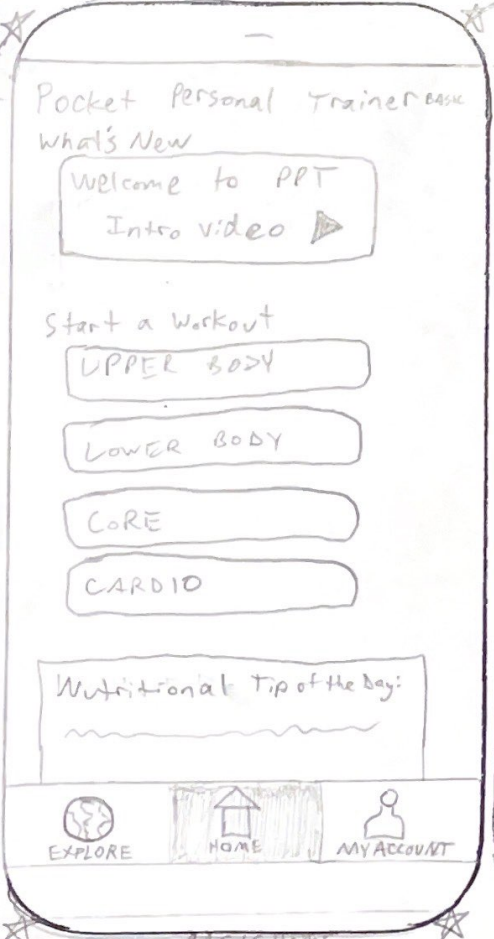 Pocket Personal Trainer BASIC
What's New
Welcome to PPT
Intro video
Start a Workout
UPPER BODY
LOWER BODY
CORE
CARDIO
Nutritional Tip of the Day:
EXPLORE HOME MY ACCOUNT